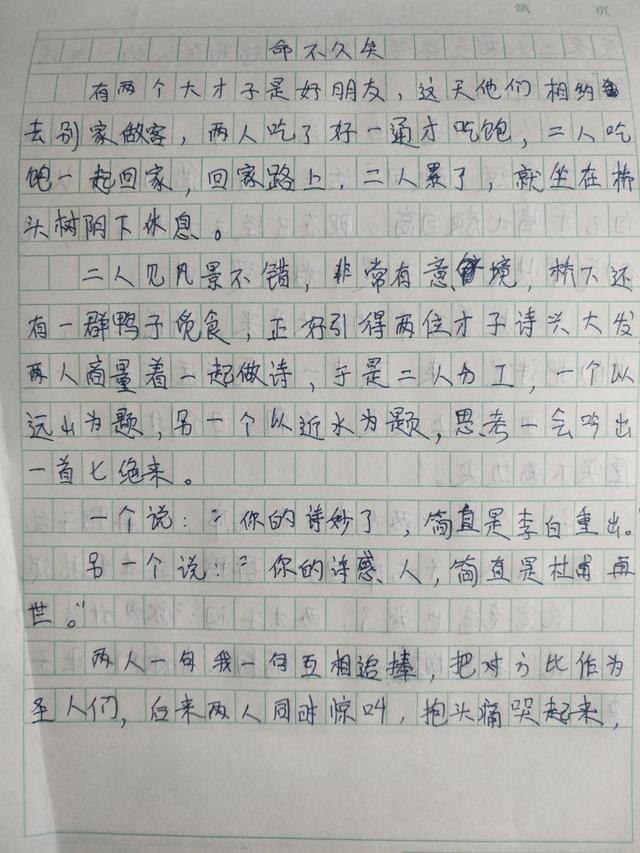 第 页
命不久矣
有两个大才子是好朋友，这天他们相约
去别家做客，两人吃了好一通才吃饱，二人吃
饱一起回家，回家路上，二人累了，就坐在桥
头树阴下休息。
二人见风景不错，非常有意境，桥下还
有一群鸭子觅食，正好引得两位才子诗兴大发，
两人商量着一起做诗，于是二人分工，一个以
远山为题，另一个以近水为题，思考一会吟出
一首七绝来。
一个说：“你的诗妙了，简直是李白重出。
另一个说：“你的诗感人，简直是杜甫再
世。”
两人一句我一句互相追捧，把对方比作为
圣人们，后来两人同时惊叫，抱头痛哭起来，